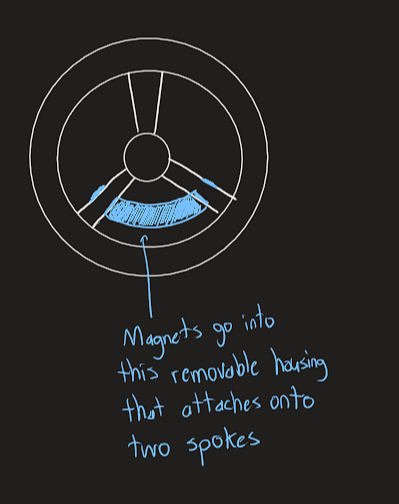 Magnets go into
this removable housing
that attaches onto
two spokes